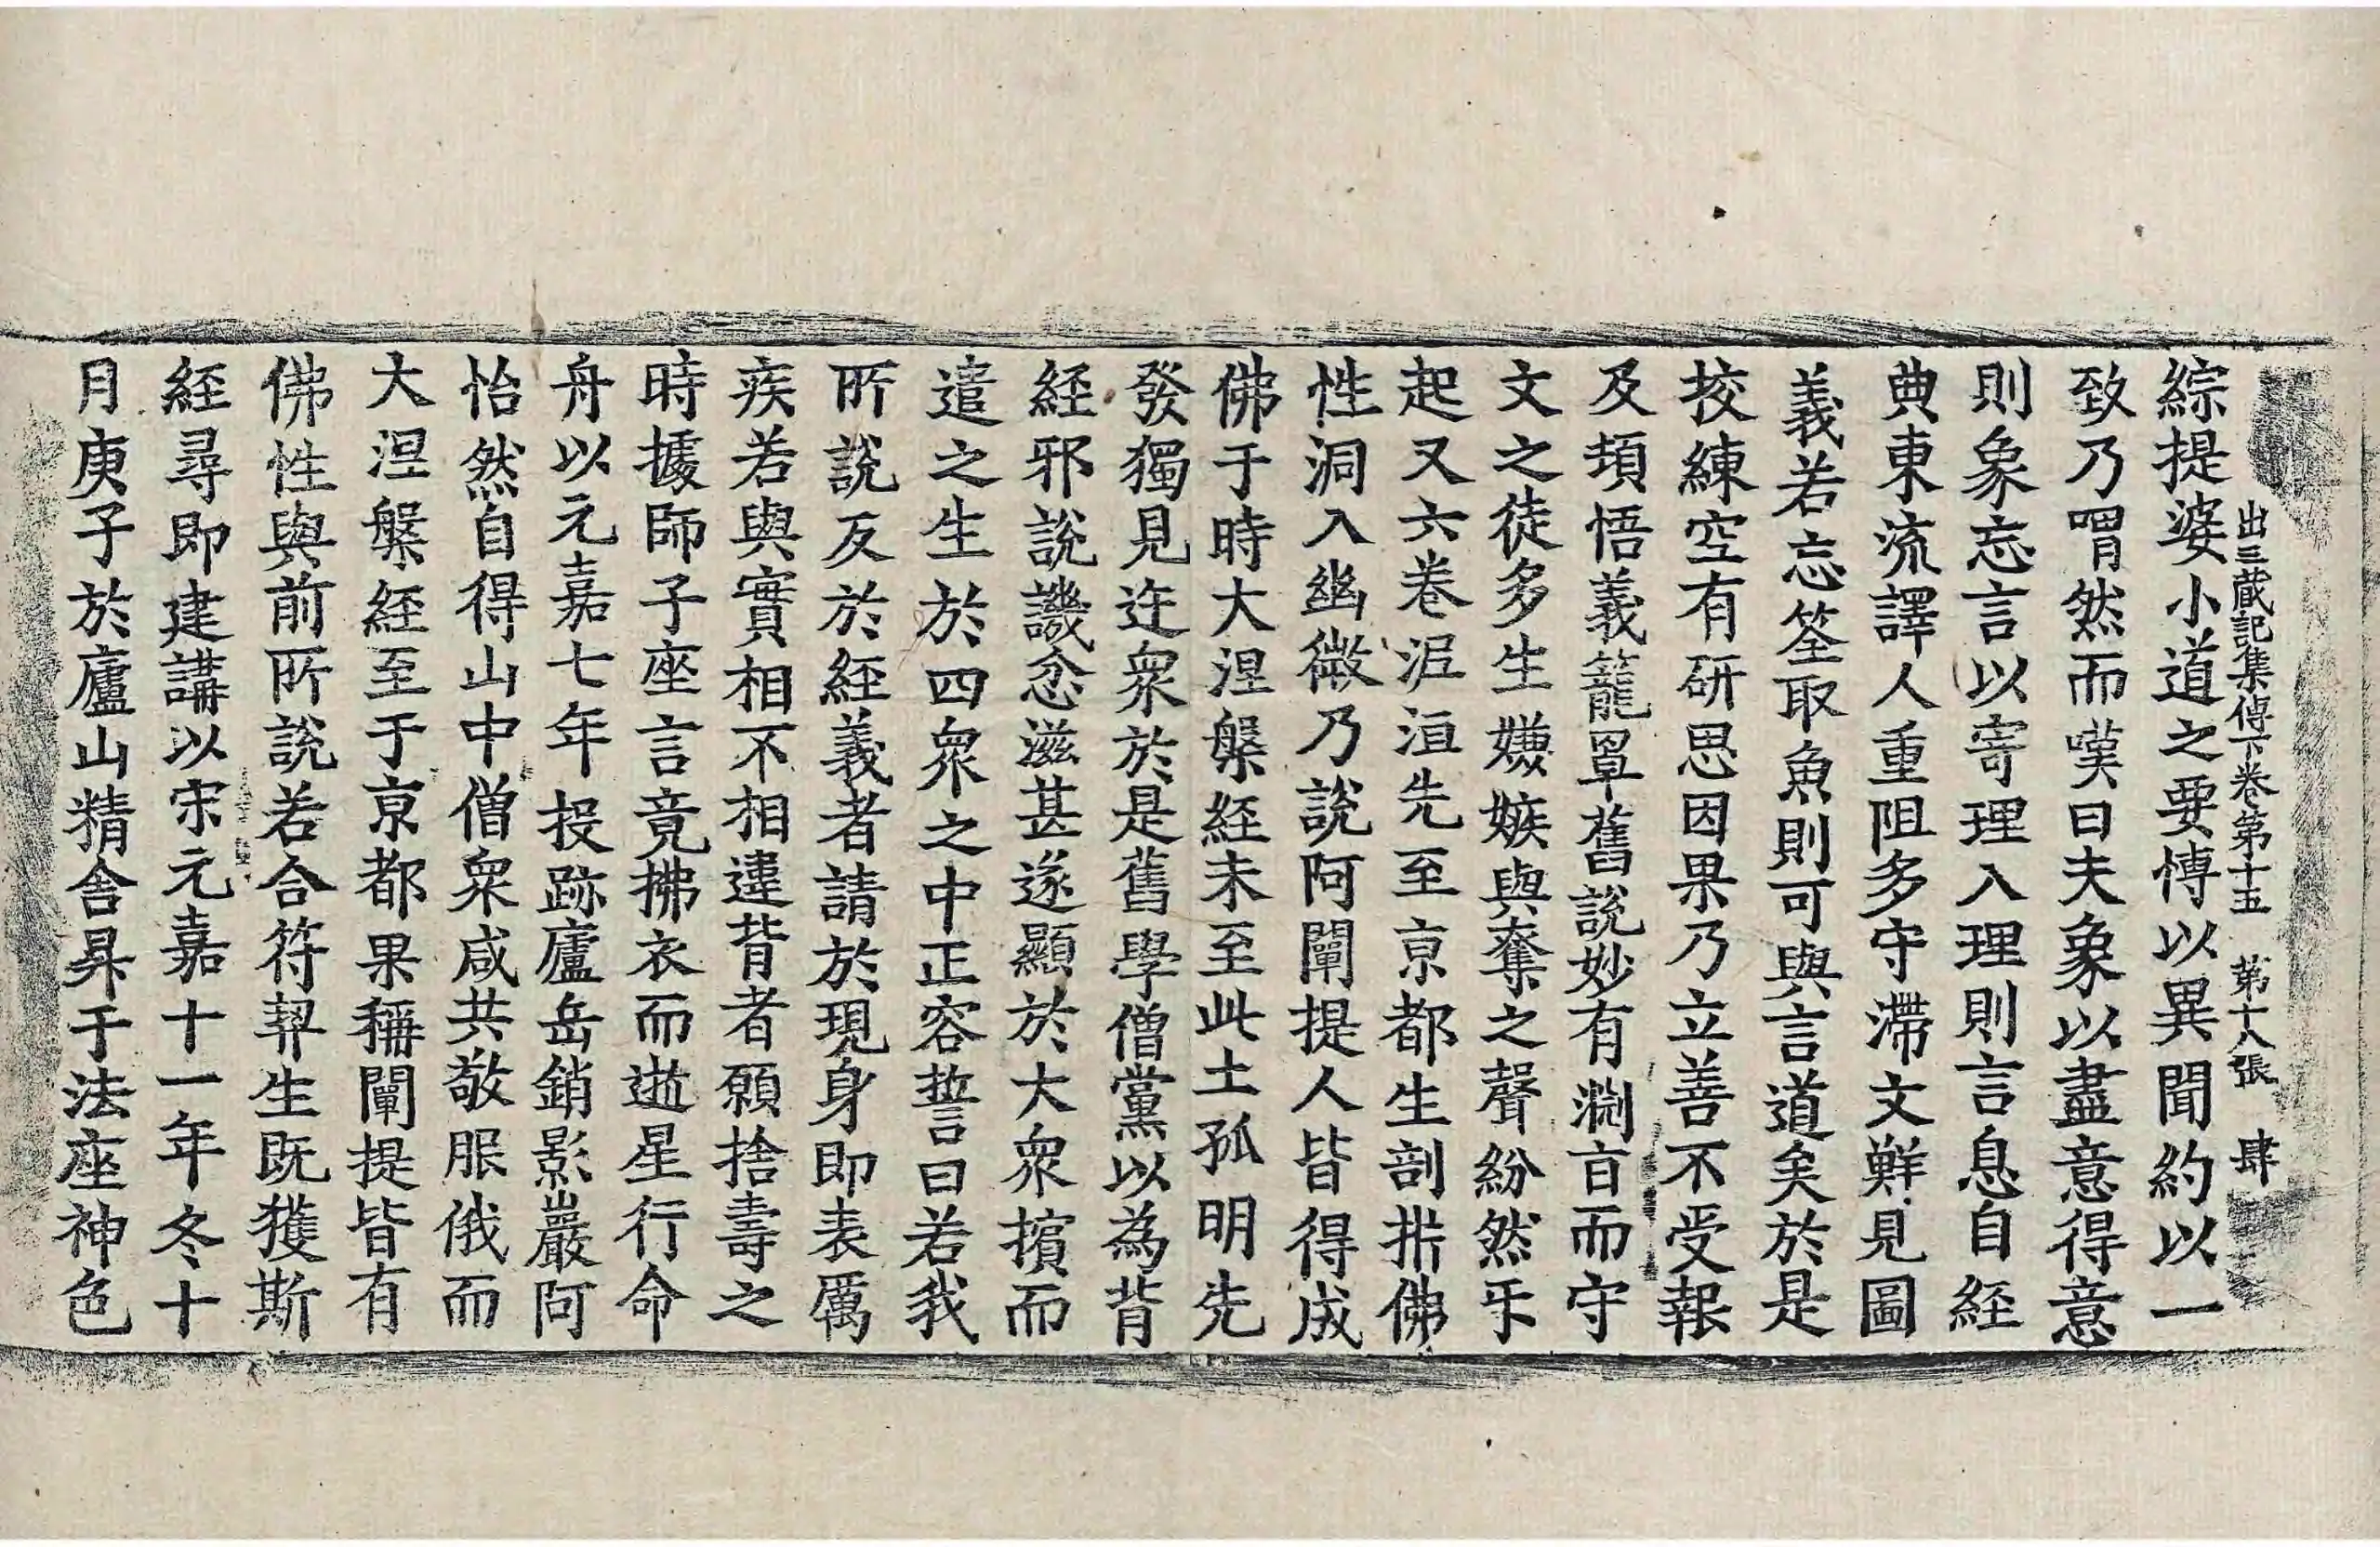 出三藏記集傳下卷第十五 第十八張 肆
綜提婆小道之要博以異聞約以一
致乃喟然而嘆曰夫象以盡意得意
則象忘言以寄理入理則言息自經
典東流譯人重阻多守滯文鮮見圓
義若忘筌取魚則可與言道矣於是
挍練空有研思因果乃立善不受報
及頓悟義籠罩舊說妙有淵旨而守
文之徒多生嫌嫉與奪之聲紛然乎
起又六卷泥洹先至京都生剖㭊佛
性洞入幽微乃說阿闡提人皆得成
佛于時大涅槃經未至此土孤明先
發獨見迕衆於是舊學僧黨以為背
經邪說譏忿滋甚遂顯於大衆擯而
遣之生於四衆之中正容誓曰若我
所說反於經義者請於現身即表厲
疾若與實相不相違背者願捨壽之
時據師子座言竟拂衣而逝星行命
舟以元嘉七年投跡廬岳銷影巖阿
怡然自得山中僧衆咸共敬服俄而
大涅槃經至于京都果稱闡提皆有
佛性與前所說若合符契生既獲斯
經尋即建講以宋元嘉十一年冬十
月庚子於廬山精舍昇于法座神色